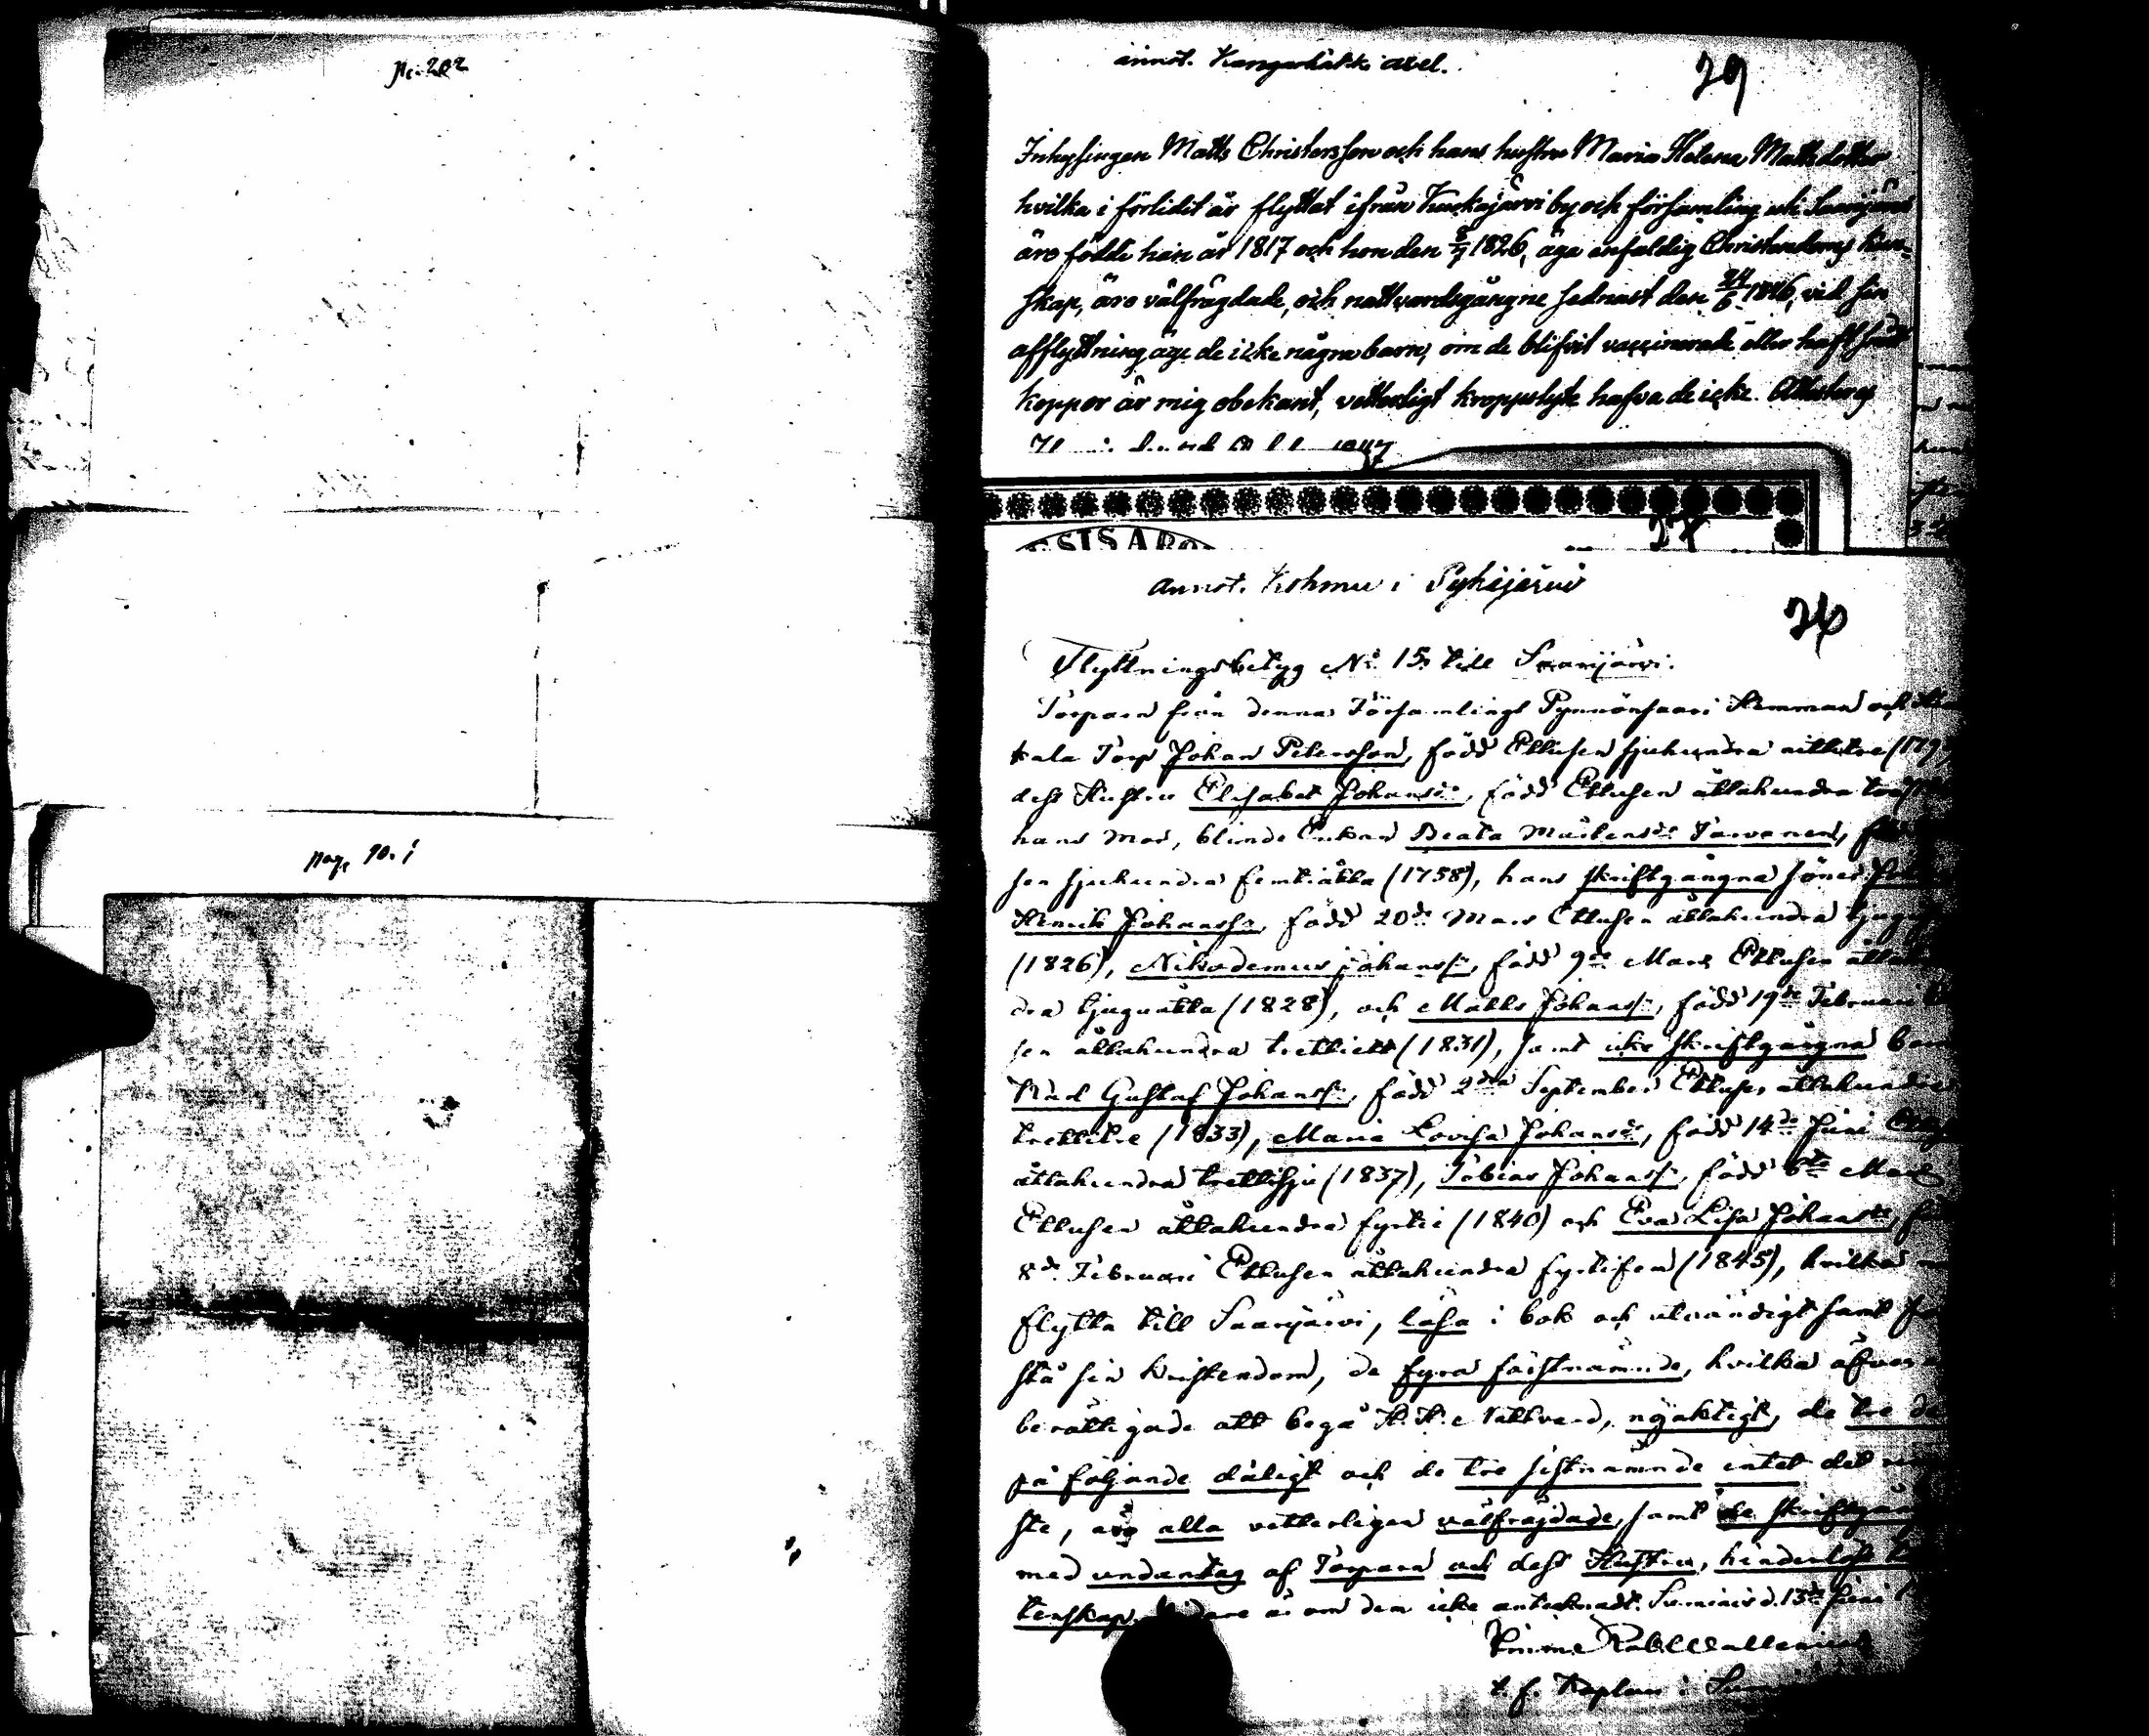 No 202
pag. 90. j
annot. Kangashäkki axel.
29
Inhysingen Matts Christersson och hans hustru Maria Helena Mattsdotter
hvilka i förlidit år flyttat ifrån Kuckajärvi by och församling uti Saarijärvi
äro födde han år 1817 och hon den 8/7 1826, äga enfaldig Christendoms kun-
skap, äro välfrägdade, och nattvardsgångne sednast den 24/5 1846, vid sin
afflyttning äge de icke några barn, om de blifvit vaccinerade eller haft
koppor är mig obekant, vetterligt kroppslyte hafva de icke. Attesterg
27
annot. Kohmu i Pyhäjärvi
26
Flyttningsbetyg No 15 till Saarijärvi.
Torparn från denna Församlings Pynnönsaari Hemman och
kala Torp Johan Petersson, född Ettusen sjuhundra nittitre (179
dess Hustru Elisabet Johansdr, född Ettusen åttahundra
hans mor, blinda Enkan Beata Mårtensdr Tarvanen,
sen sjuhundra femtiåtta (1758), hans skriftgångna söner
Henrik Johanss, född 20de Mars Ettusen åttahundra
(1826), Nikodemus Johanss, född 9de Mars Ettusen
dra tjuguåtta (1828), och Matts Johanss, född 19de Februari
sen åttahundra trettiett (1831), samt icke skriftgångna
Karl Gustaf Johanss, född 2dra September Ettusen åttahundra
trettitre (1833), Maria Lovisa Johansdr, född 14de Juni
åttahundra trettisju (1837), Tobias Johanss, född 6te
Ettusen åttahundra fyrtio (1840) och Eva Lisa Johansdr,
8de Februari Ettusen åttahundra fyrtifem (1845), hvilka
flytta till Saarijärvi, läsa i bok och utvändigt samt
stå sin kristendom, de fyra förstnämnde, hvilka äfven
berättigade att begå H. H. Nattvard, nöjaktigt, de tre
på följande dåligt och de tre sistnämnde intet det
ste, äro alla vetterligen välfräjdade, samt de
med undantag af Torparn och dess Hustru, hinderlöse
tenskap. är om dem icke antecknadt. Sumiais d. 13de Juni
t. f. Kaplan i